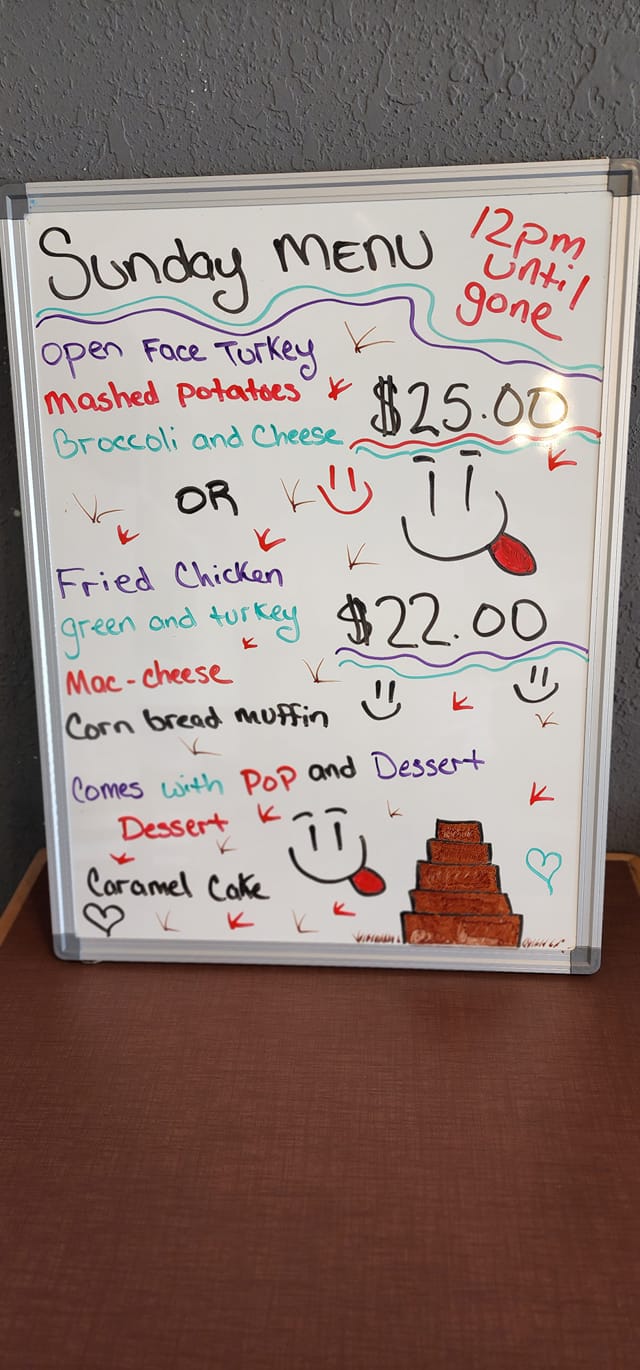 Sunday MENU
12pm
until
gone
Open Face Turkey
Mashed Potatoes
$25.00
Broccoli and Cheese
OR
Fried Chicken
green and turkey
$22.00
Mac-cheese
Corn bread muffin
Comes with POP and Dessert
Dessert
Caramel Cake